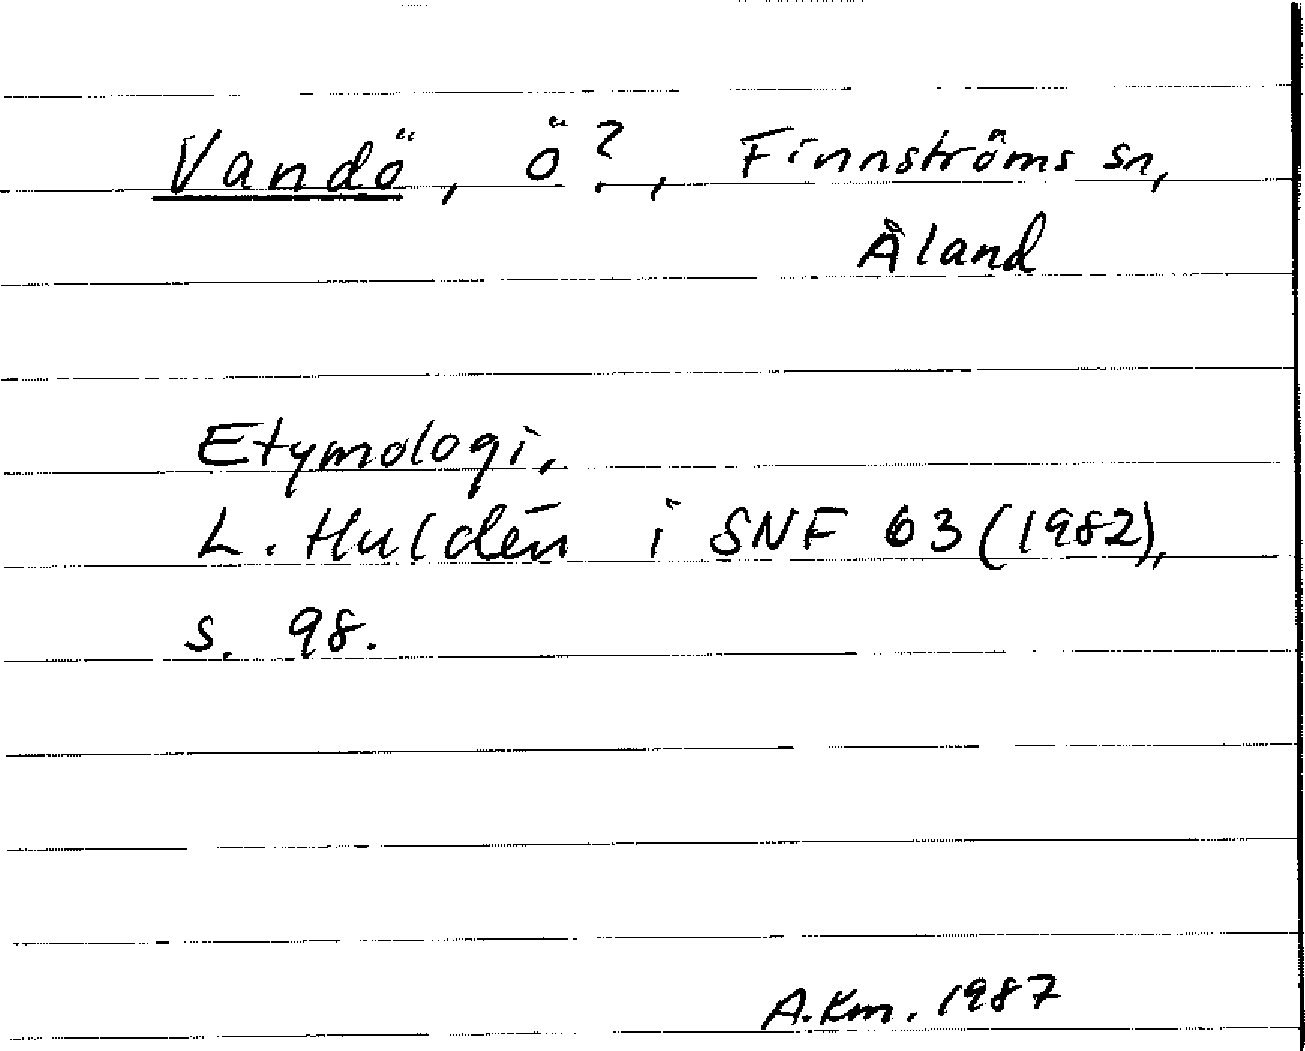 Vandö, ö?, Finnströms sn,
Åland
Etymologi,
L. Huldén i SNF 63 (1982),
s. 98.
A.Km. 1987